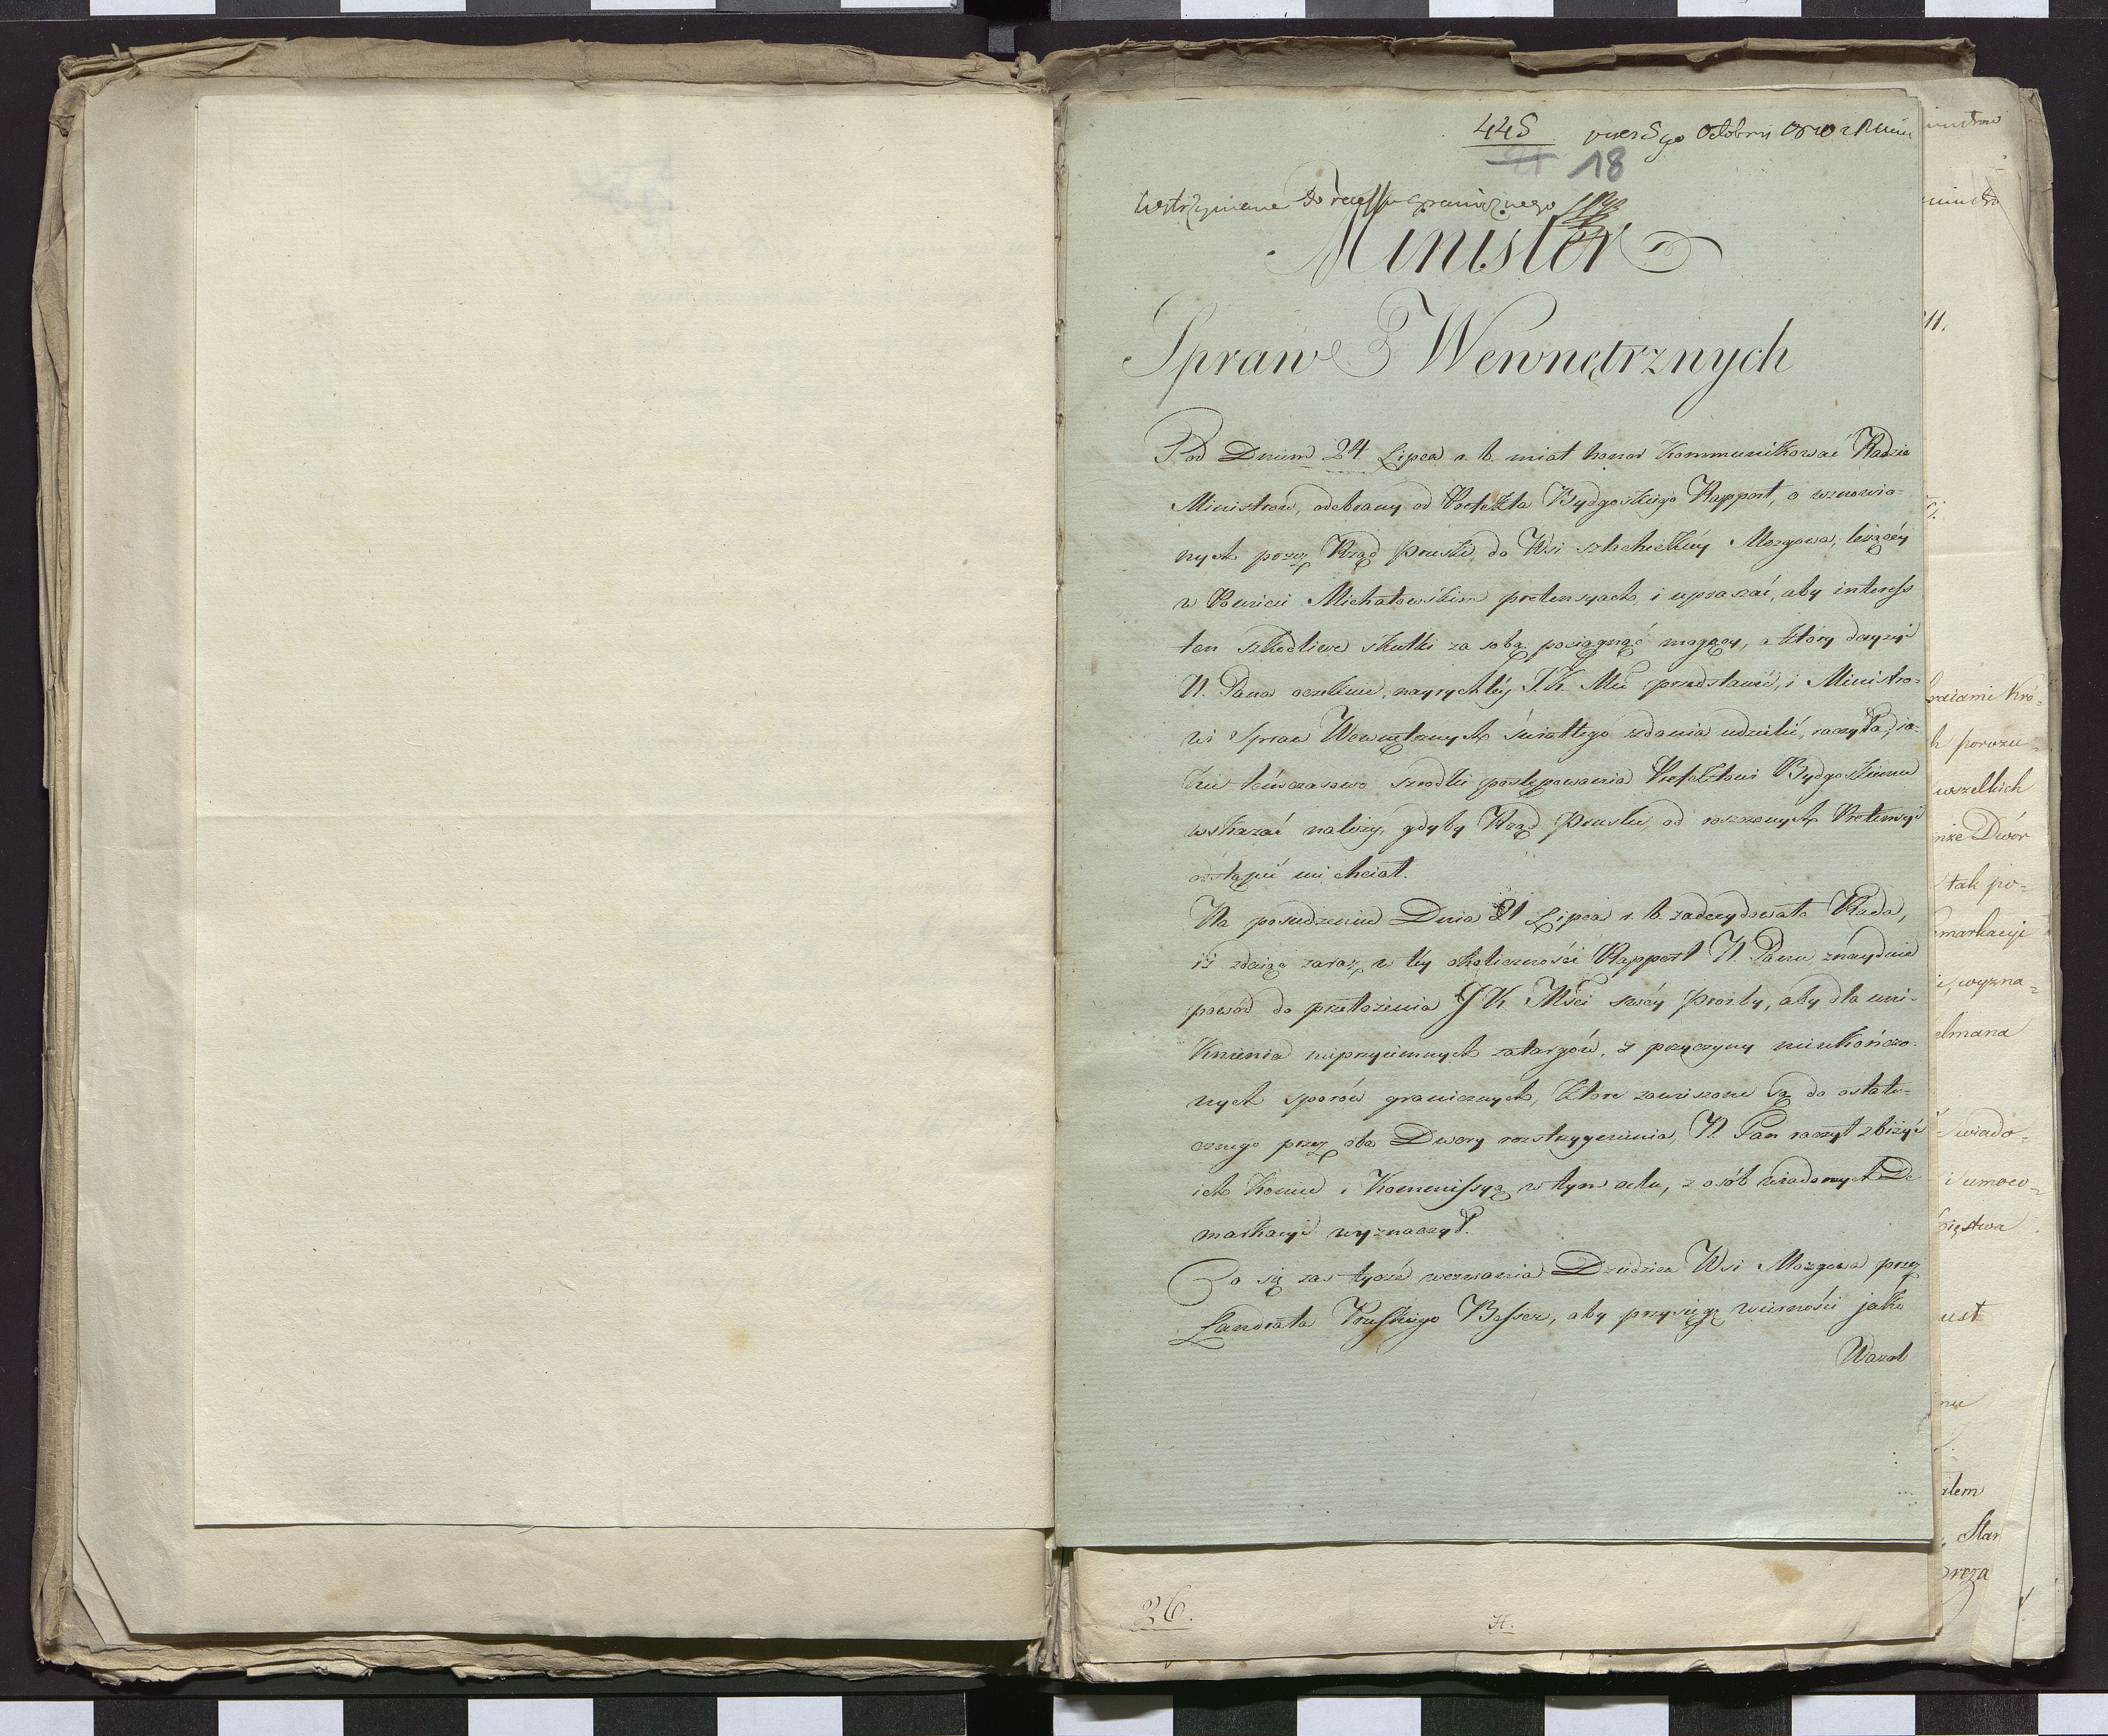 445
21 18
Wstrzymane do recessu granicznego
Minister
Spraw Wewnętrznych
Pod Dniem 24 Lipca r. b. miał honor Kommunikować Radzie
Ministrów, odebrany od Prefekta Bydgoskiego Rapport, o wznowio-
nych przez Rząd Pruski, do Wsi szlacheckiéy Mozgowa, leżącéy
w Powiecie Michałowskim pretensyach, i upraszać, aby interess
ten szkodliwe skutki za sobą pociągnąć mogący, a który decyzyi
N. Pana oczekuie, nayrychléy J. K. Mci przedstawić, i Ministro-
wi Spraw Wewnętrznych światłego zdania udzielić, raczyła, ja-
kie tymczasowo szrodki postępowania Prefektowi Bydgoskiemu
wskazać należy, gdyby Rząd Pruski, od roszczonych Pretensyi
odstąpić nie chciał.
Na posiedzeniu Dnia 31 Lipca r. b. zadecydowała Rada,
iż zdaiąc zaraz w téy okoliczności Rapport N. Panu, znayduie
powód do przełożenia J K. Mści swéy prośby, aby dla uni-
knienia nieprzyiemnych zatargów, z przyczyny nieukończo-
nych sporów granicznych, które zawieszone są do ostate-
cznego przez oba Dwory rozstrzygnienia, N. Pan raczył zbliżyć
ich koniec i Kommissyą w tym celu, z osób wiadomych De-
markacyi wyznaczył.
Co się zaś tycze wezwania Dziedzica Wsi Mozgowa przez
Landrata Pruskiego Besser, aby przysięgę wierności jako
Wazal
26.
H.
ministrow
11.
Kró-
h porozu-
wszelkich
Dwór
tak po-
markacyi
i, wyzna-
elmana
wiado-
i umoco-
ust
nie
alem
Star